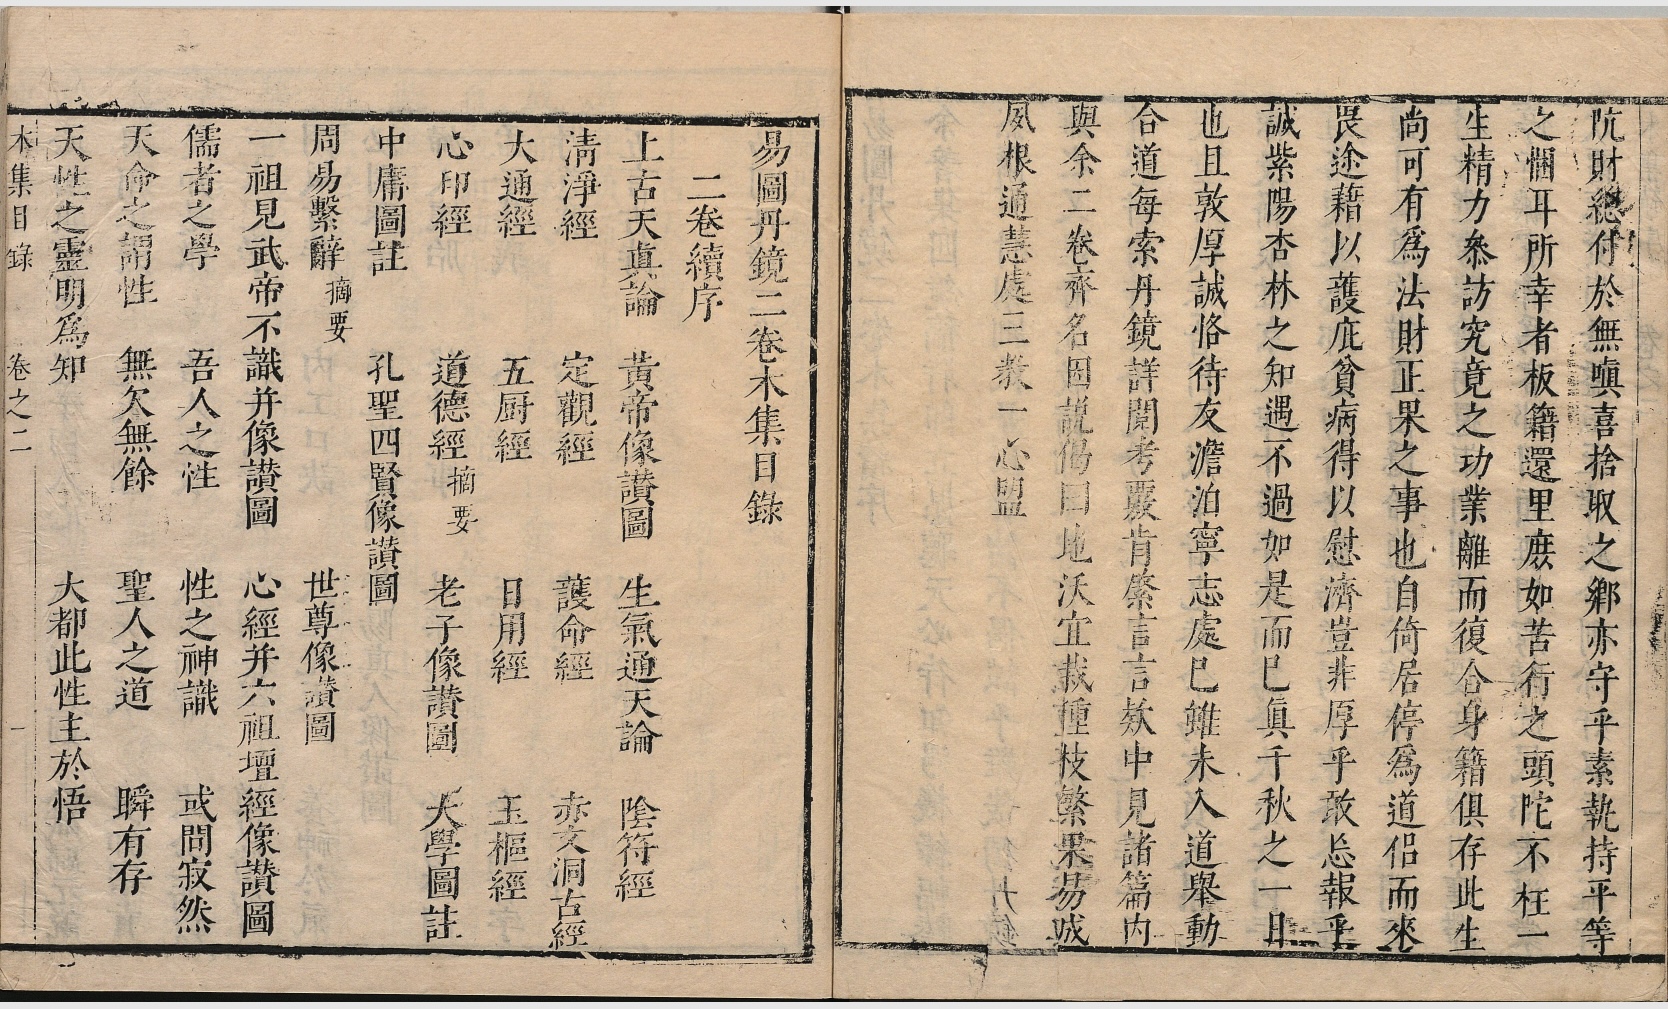 阬財總付於無嗔喜捨取之鄉亦守乎素執持平等
之悃耳所幸者板籍還里庶如苦行之頭陀不枉一
生精力參訪究竟之功業離而復合身籍俱存此生
尚可有為法財正果之事也自倚居停為道侶而來
畏途藉以護庇貧病得以慰濟豈非厚乎敢忘報乎
誠紫陽杏林之知遇不過如是而已真千秋之一日
也且敦厚誠恪待友澹泊寧志處已雖未入道舉動
合道每索丹鏡詳閱考覈肯綮言言欵中見諸篇內
與余二卷齊名因説偈曰地沃宜栽種枝繁果易成
夙根通慧處三教一心盟
易圖丹鏡二卷木集目錄
二卷續序
上古天真論 黃帝像讃圖 生氣通天論 陰符經
清淨經 定觀經 護命經 赤文洞古經
大通經 五厨經 日用經 玉樞經
心印經 道德經摘要 老子像讃圖 大學圖註
中庸圖註 孔聖四賢像讃圖
周易繫辭摘要 世尊像讃圖
一祖見武帝不識并像讃圖 心經并六祖壇經像讃圖
儒者之學 吾人之性 性之神識 或問寂然
天命之謂性 無欠無餘 聖人之道 瞬有存
天性之靈明為知 大都此性主於悟
木集目錄 卷之二 一